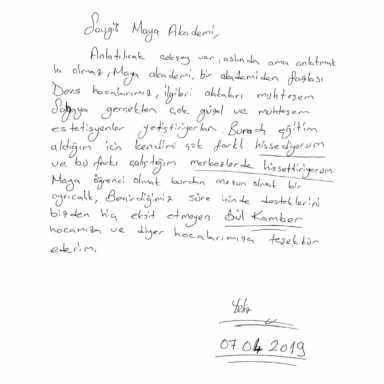 Saygılı Maya Akademi,
Anlatılıcak çokşey var, aslında ama anlatmak
la olmaz, Maya akademi bir akademiden fazlası
Ders hocalarımız, ilgileri alakaları muhteşem
Sahaya gerçekten çok güzel ve muhteşem
estetisyenler yetiştiriyorlar. Burada eğitim
aldığım için kendimi çok farklı hissediyorum
ve bu farkı çalıştığım merkezlerde hissettiriyorum.
Maya öğrenci olmak burdan mezun olmak bir
ayrıcalık, Bizden hiç eksit etmeyen Gül Kamber
hocamıza ve diğer hocalarımıza teşekkür
ederim.
07 04 2019